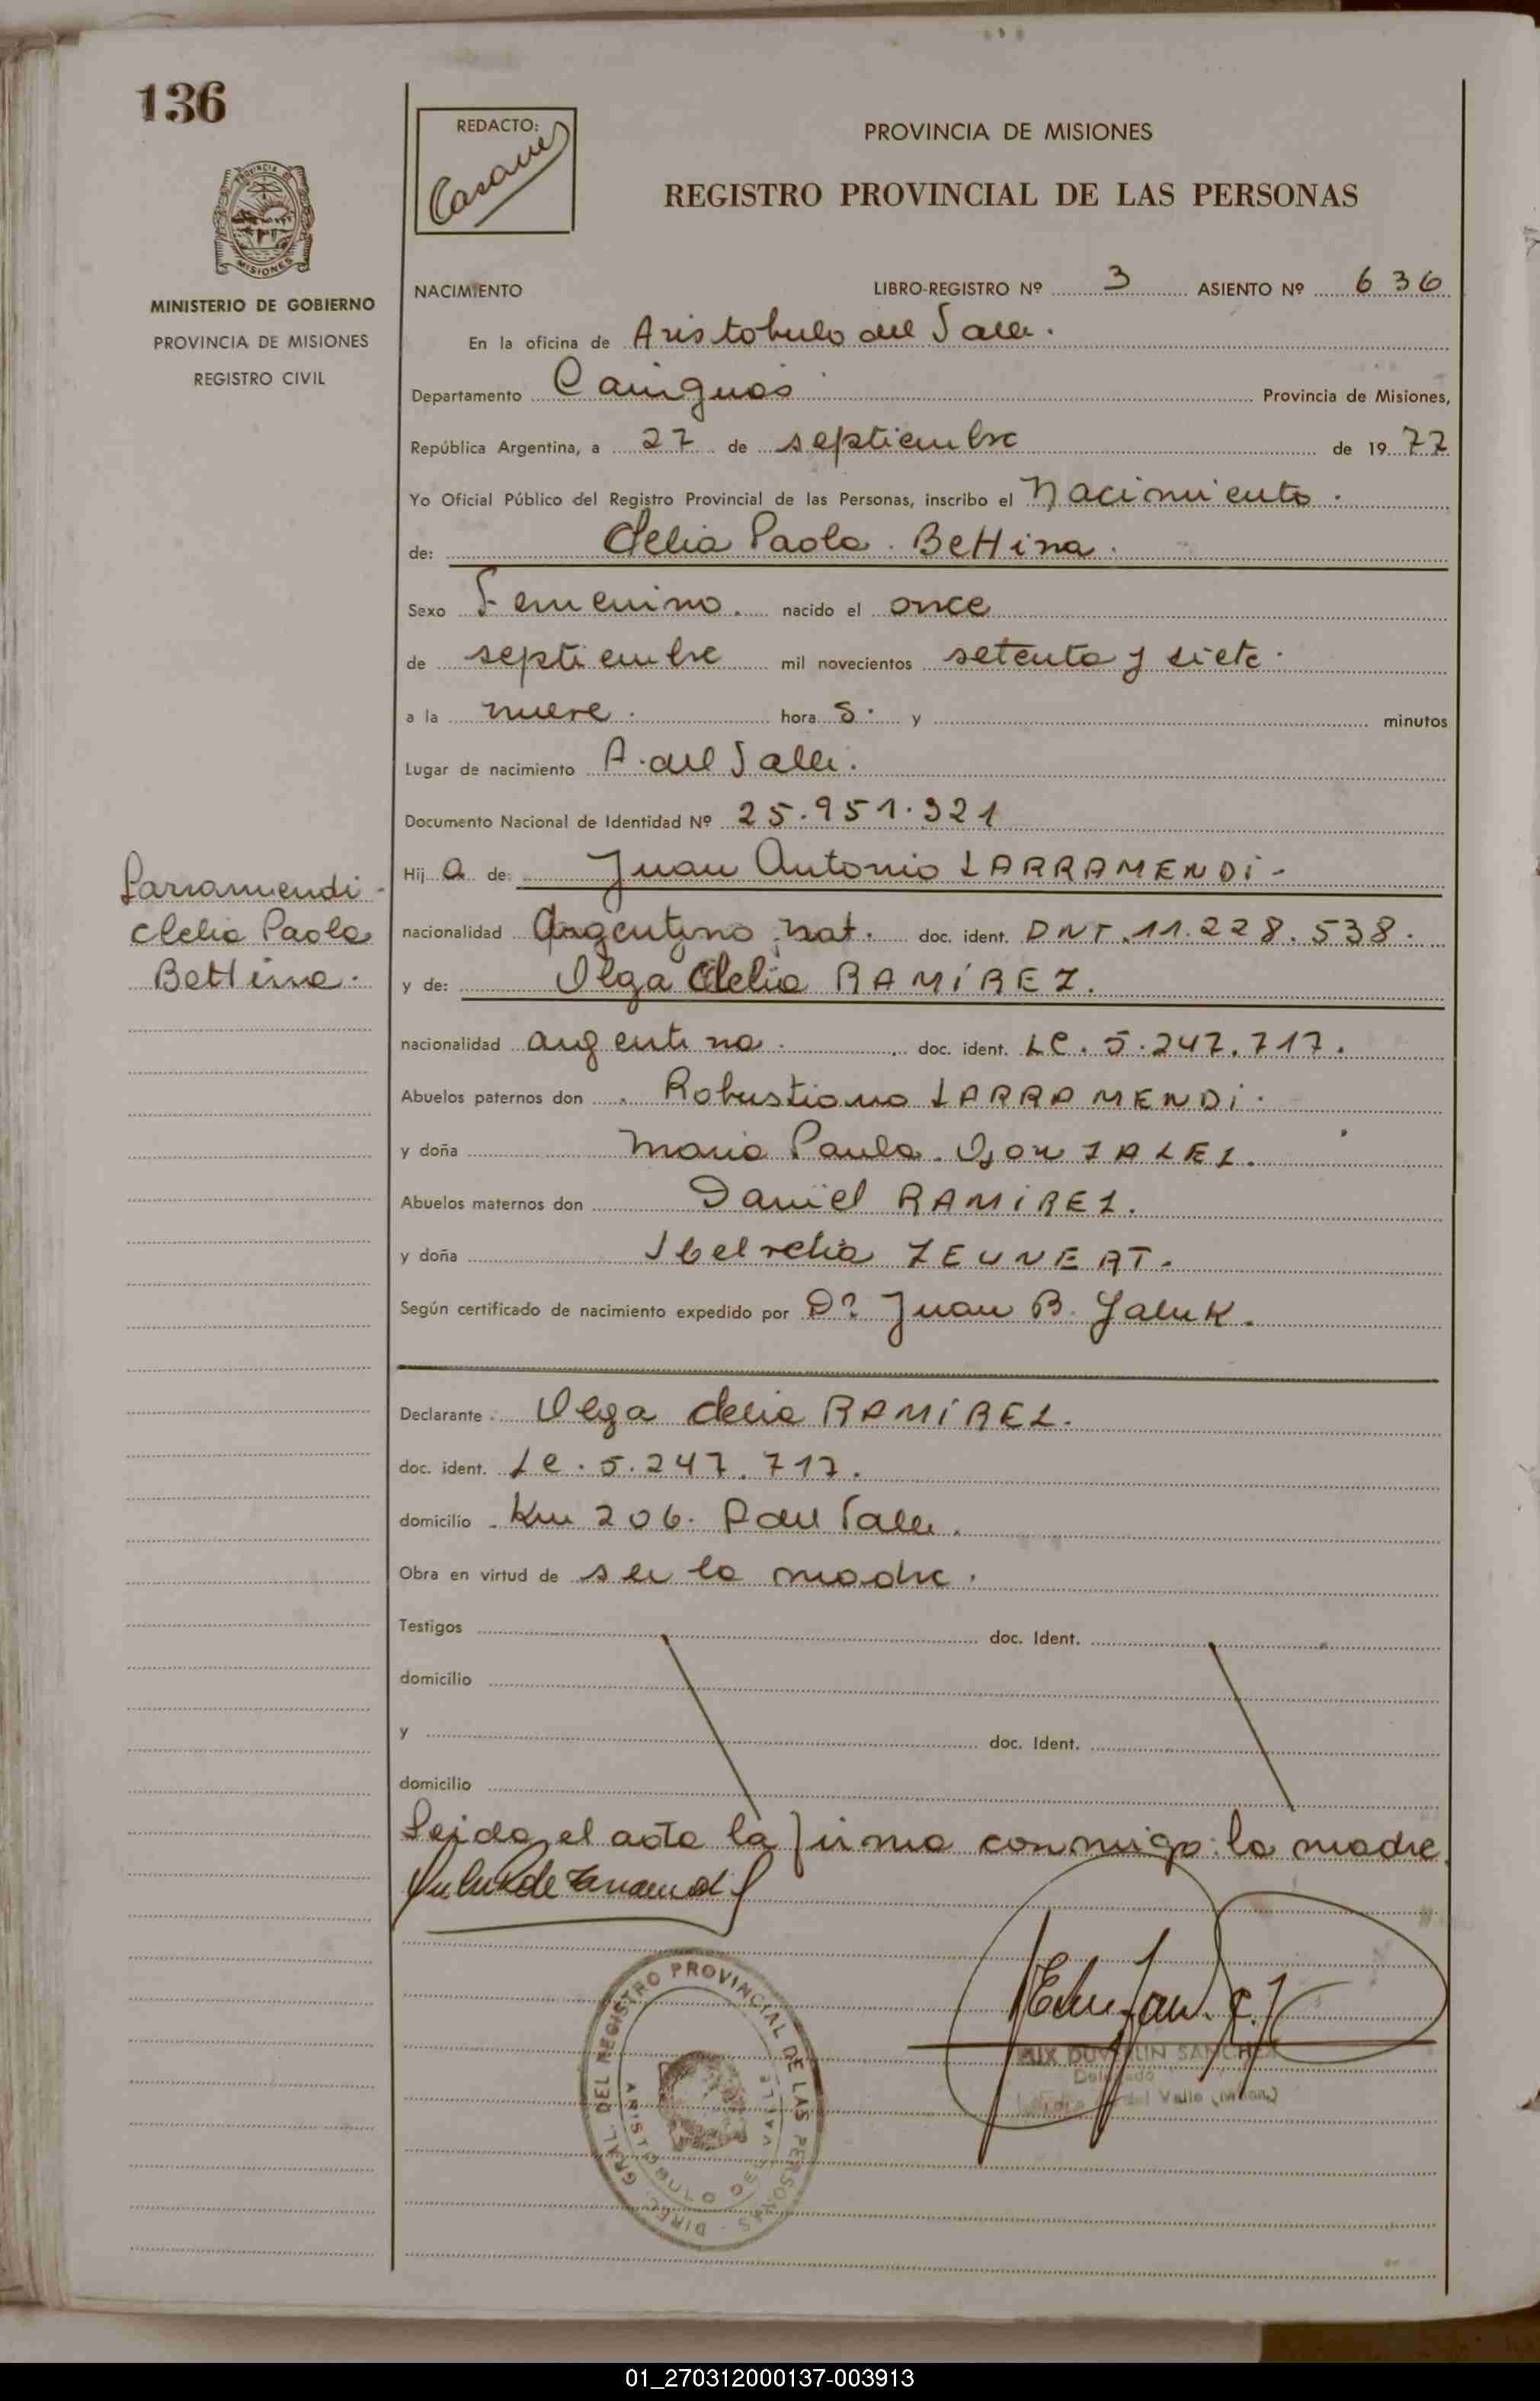 136
REDACTO:
PROVINCIA DE MISIONES
REGISTRO PROVINCIAL DE LAS PERSONAS
MISIONES
MINISTERIO DE GOBIERNO
PROVINCIA DE MISIONES
REGISTRO CIVIL
NACIMIENTO LIBRO-REGISTRO Nº 3 ASIENTO Nº 636
En la oficina de Aristobulo del Valle.
Departamento Cainguas Provincia de Misiones,
República Argentina, a 27 de septiembre de 1977
Yo Oficial Público del Registro Provincial de las Personas, inscribo el Nacimiento.
de: Clelia Paola. Bettina.
Sexo Femenino. nacido el once
de septiembre mil novecientos setenta y siete.
a la nueve. hora s. y minutos
Lugar de nacimiento A. del Valle.
Documento Nacional de Identidad Nº 25.951.321
Hij a de: Juan Antonio LARRAMENDI-
Larramendi-
Clelia Paola
Bettina.
nacionalidad Argentino, nat. doc. ident. DNI. 11.228.538.
y de: Olga Clelia RAMÍREZ.
nacionalidad argentina. doc. ident. LC. 5.247.717.
Abuelos paternos don Robustiano LARRAMENDI.
y doña Maria Paula. GONZALEZ.
Abuelos maternos don Daniel RAMIREZ.
y doña ZEUNERT.
Según certificado de nacimiento expedido por Dr Juan B. Yaluk.
Declarante Olga Clelia RAMÍREZ.
doc. ident. LC. 5.247.717.
domicilio Km 206. A del Valle.
Obra en virtud de ser la madre.
Testigos doc. Ident.
domicilio
y doc. Ident.
domicilio
Leida el acta la firma conmigo: la madre.
DIREC. GRAL. DEL REGISTRO PROVINCIAL DE LAS PERSONAS
ARISTOBULO DEL VALLE
SANCHEZ
Delegado
del Valle
01_270312000137-003913